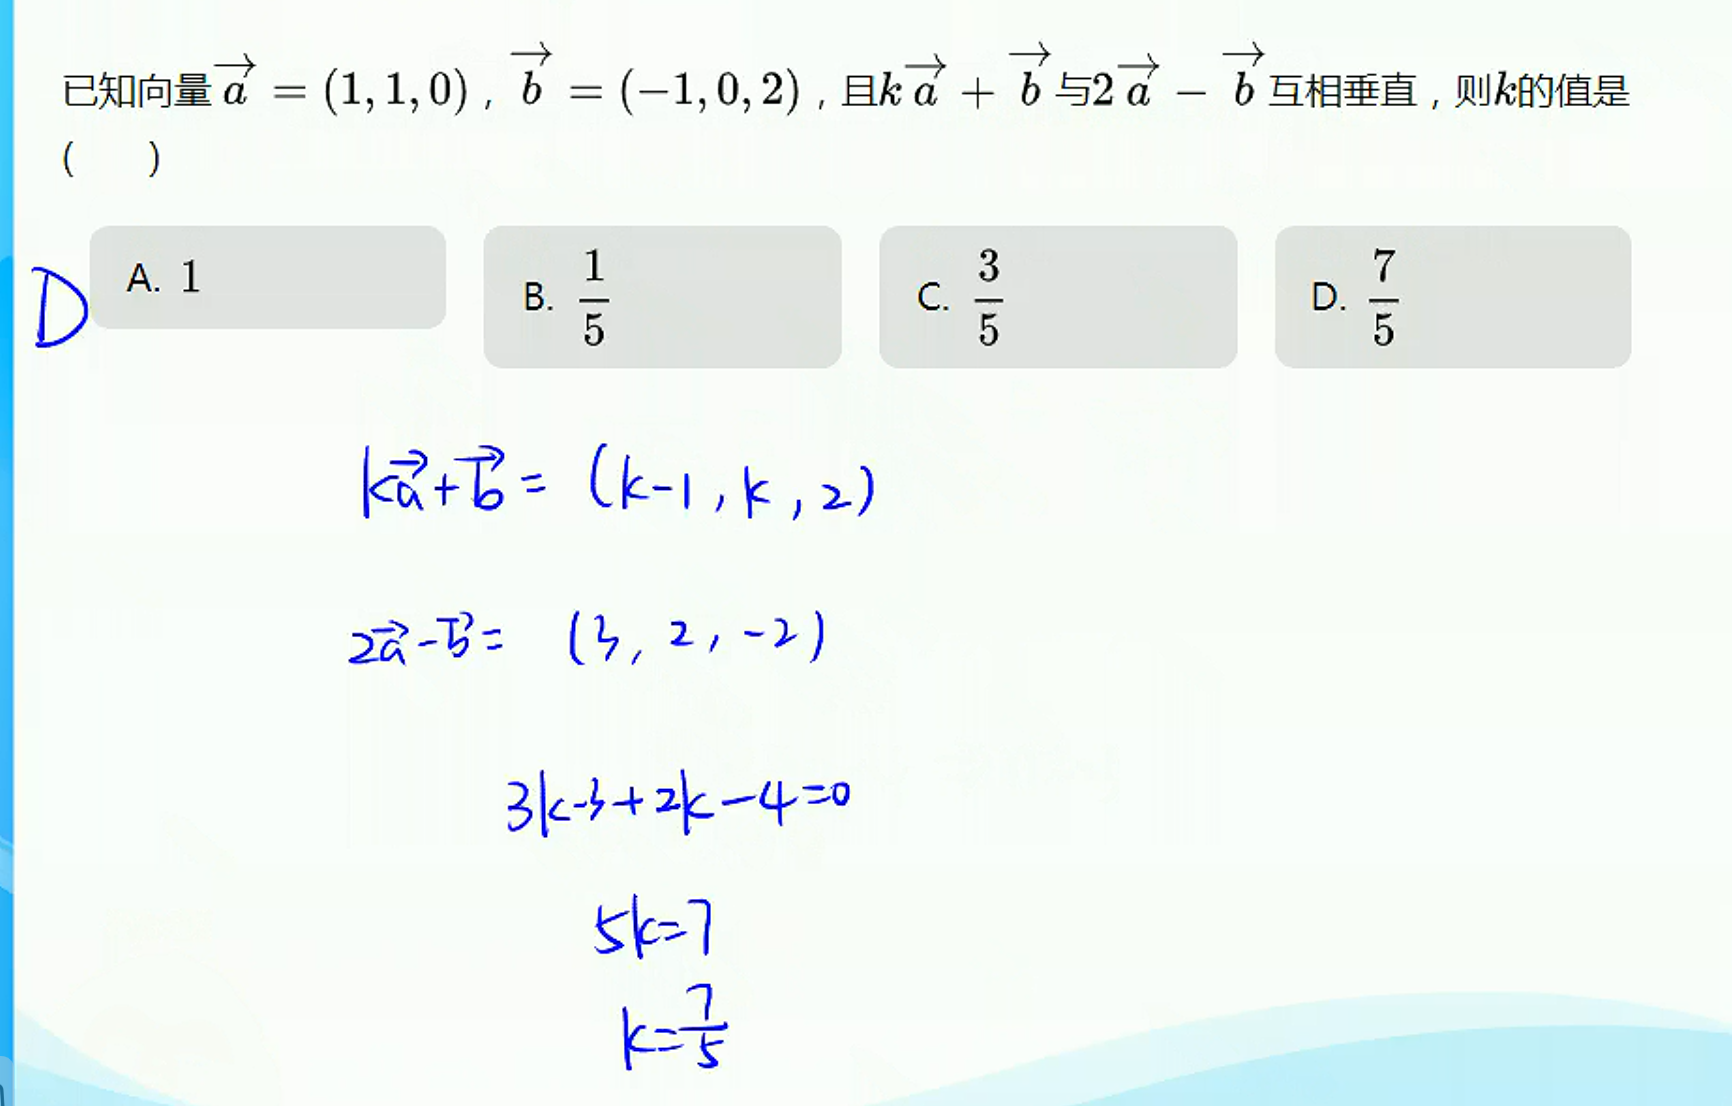 已知向量 $\overrightarrow{a} = (1,1,0)$，$\overrightarrow{b} = (-1,0,2)$，且$k\overrightarrow{a} + \overrightarrow{b}$与$2\overrightarrow{a} - \overrightarrow{b}$互相垂直，则$k$的值是
(　　)
D A. 1 B. $\frac{1}{5}$ C. $\frac{3}{5}$ D. $\frac{7}{5}$
$k\overrightarrow{a}+\overrightarrow{b}= (k-1, k, 2)$
$2\overrightarrow{a}-\overrightarrow{b}= (3, 2, -2)$
$3k-3+2k-4=0$
$5k=7$
$k=\frac{7}{5}$